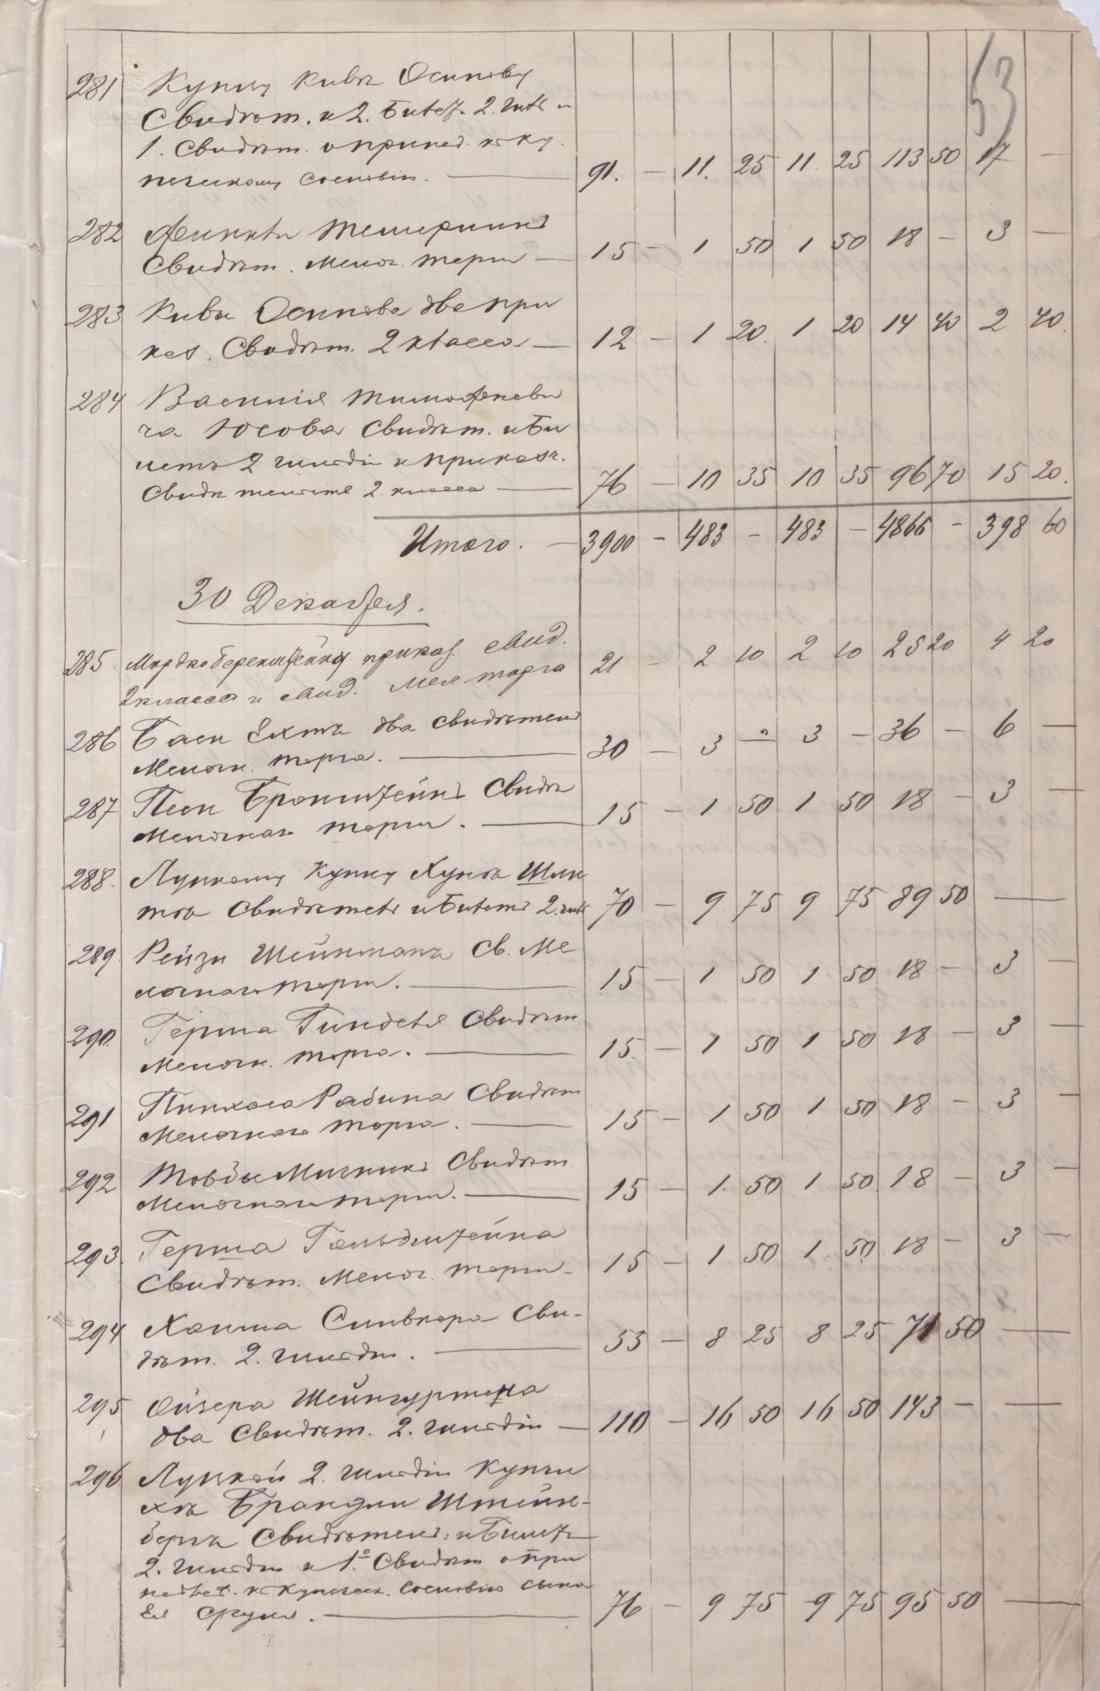 53
281 Купцу Кивѣ Осипову
Свидѣт. и 2. билет. 2. гильд. и
1. Свидѣт. о принад. къ ку
печескому сословію. — 91. — 11. 25 11 25 113 50 17 —
282
Свидѣт. мелоч. торга — 15 — 1 50 1 50 18 — 3 —
283 Кивы Осипова два при
каз. Свидѣт. 2 класса — 12 — 1 20. 1 20 14 40 2 40.
284 Василія Тимофееви
ча Юсова Свидѣт. и би
летъ 2 гильдіи и приказч.
Свидѣтельство 2 класса — 76 — 10 35 10 35 96 70 15 20.
Итого. — 3900 — 483 — 483 — 4866 — 398 60
30 Декабря.
285 приказ. свид.
2 класса и свид. мел торга 21 — 2 10 2 10 25 20 4 20
286 Баси два свидѣтел
мелочн. торга. — 30 — 3 — 3 — 36 — 6 —
287 Песи Бронштейнъ Свидѣ
мелочнаго торга. — 15 — 1 50 1 50 18 — 3 —
288. Луцкому купцу
Свидѣтел и билетъ 2. гил 70 — 9 75 9 75 89 50 —
289 Рейзи Шейнманъ Св. ме
лочнаго торга. — 15 — 1 50 1 50 18 — 3 —
290. Герша Гинделя Свидѣт
мелочн. торга. — 15. — 1 50 1 50 18 — 3 —
291 Пинхаса Рабина Свидѣт
мелочнаго торга. — 15 — 1 50 1 50 18 — 3 —
292 Товбы Мигникъ Свидѣт
мелочнаго торга. — 15 — 1. 50 1 50 18 — 3 —
293. Герша Гольдштейна
Свидѣт. мелоч. торга — 15 — 1 50 1. 50 18 — 3 —
294 Хаима Спивкора Сви-
дѣт. 2. гильдіи. — 55 — 8 25 8 25 71 50 —
295 Ойзера
два Свидѣт. 2. гильдіи — 110 — 16 50 16 50 143 — —
296 Луцкой 2. гильдіи купчи
хѣ Брандли Штейн-
бергъ Свидѣтел. и билетъ
2. гильдіи и 1е Свидѣт о при
надлеж. къ купеческ. сословію сына
Ея Сруля. — 76 — 9 75 9 75 95 50 —